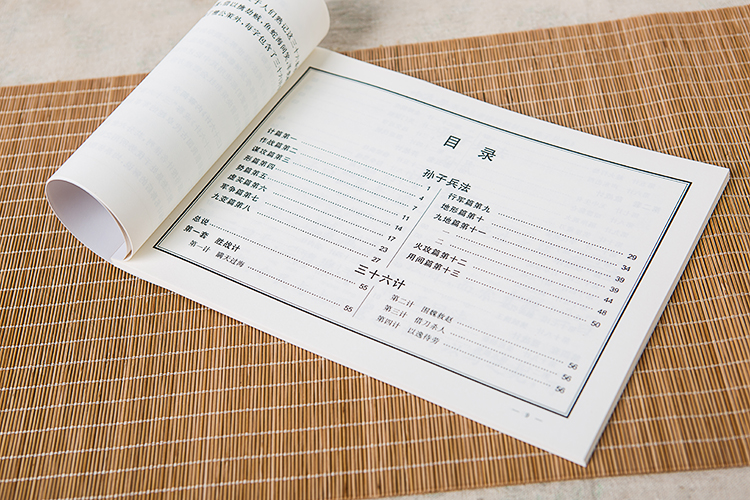 于人们熟记这三十
借以擒劫贼，鱼蛇海间笑
公策外，每字包含了三十
目 录
孙子兵法
计篇第一 1
作战篇第二 4
谋攻篇第三 7
形篇第四 11
势篇第五 14
虚实篇第六 17
军争篇第七 23
九变篇第八 27
行军篇第九 29
地形篇第十 34
九地篇第十一 39
一 39
二 44
火攻篇第十二 48
用间篇第十三 50
三十六计
总说 55
第一套 胜战计
第一计 瞒天过海 55
第二计 围魏救赵 56
第三计 借刀杀人 56
第四计 以逸待劳 56